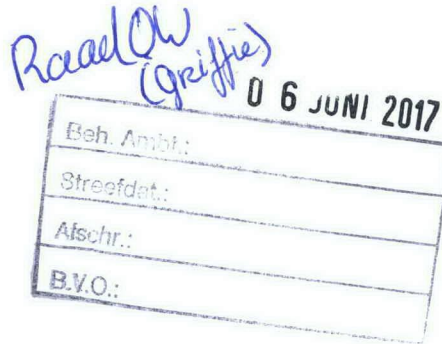 Raad OW
(griffie)
06 JUNI 2017
Beh. Ambt.:
Streefdat.:
Afschr.:
B.V.O.: